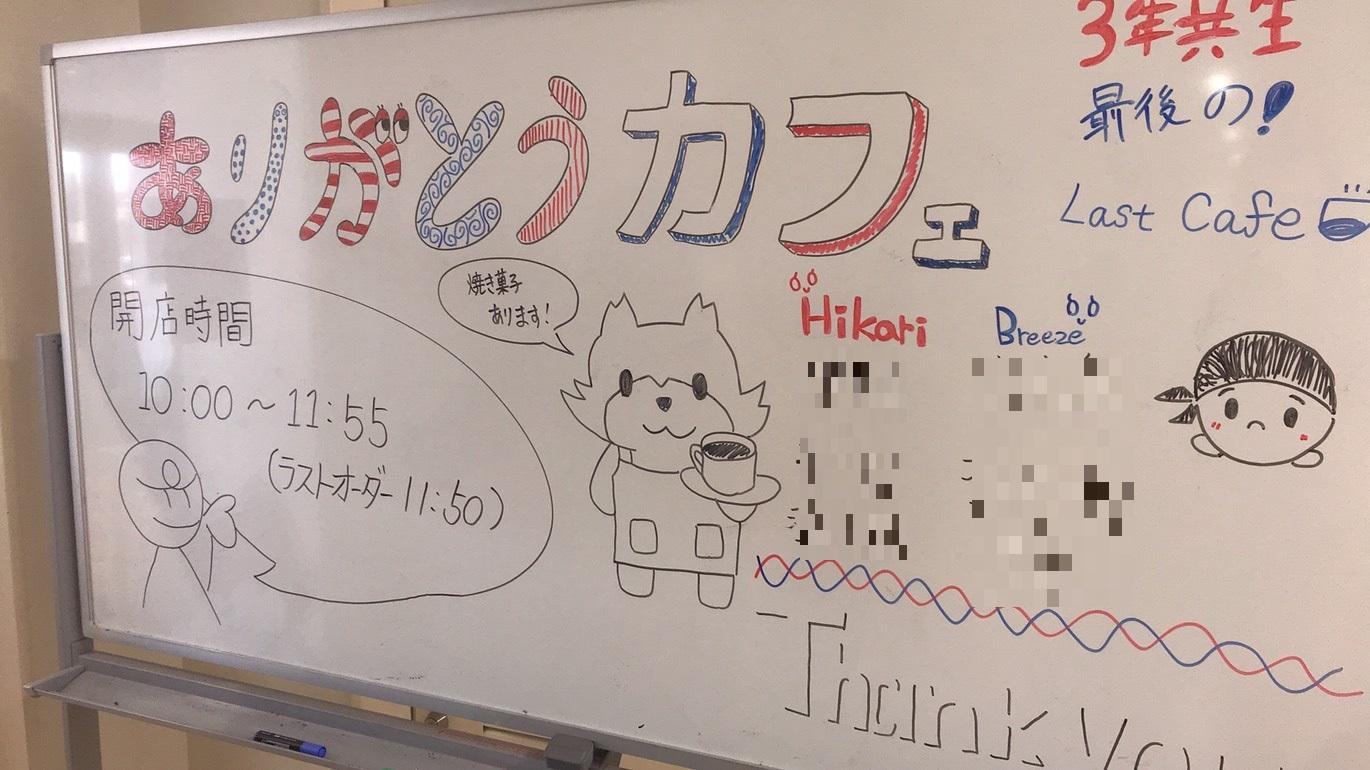 3年共生
最後の!
Last Cafe
ありがとうカフェ
開店時間
10:00～11:55
(ラストオーダー 11:50)
焼き菓子
あります!
Hikari
Breeze
Thank You